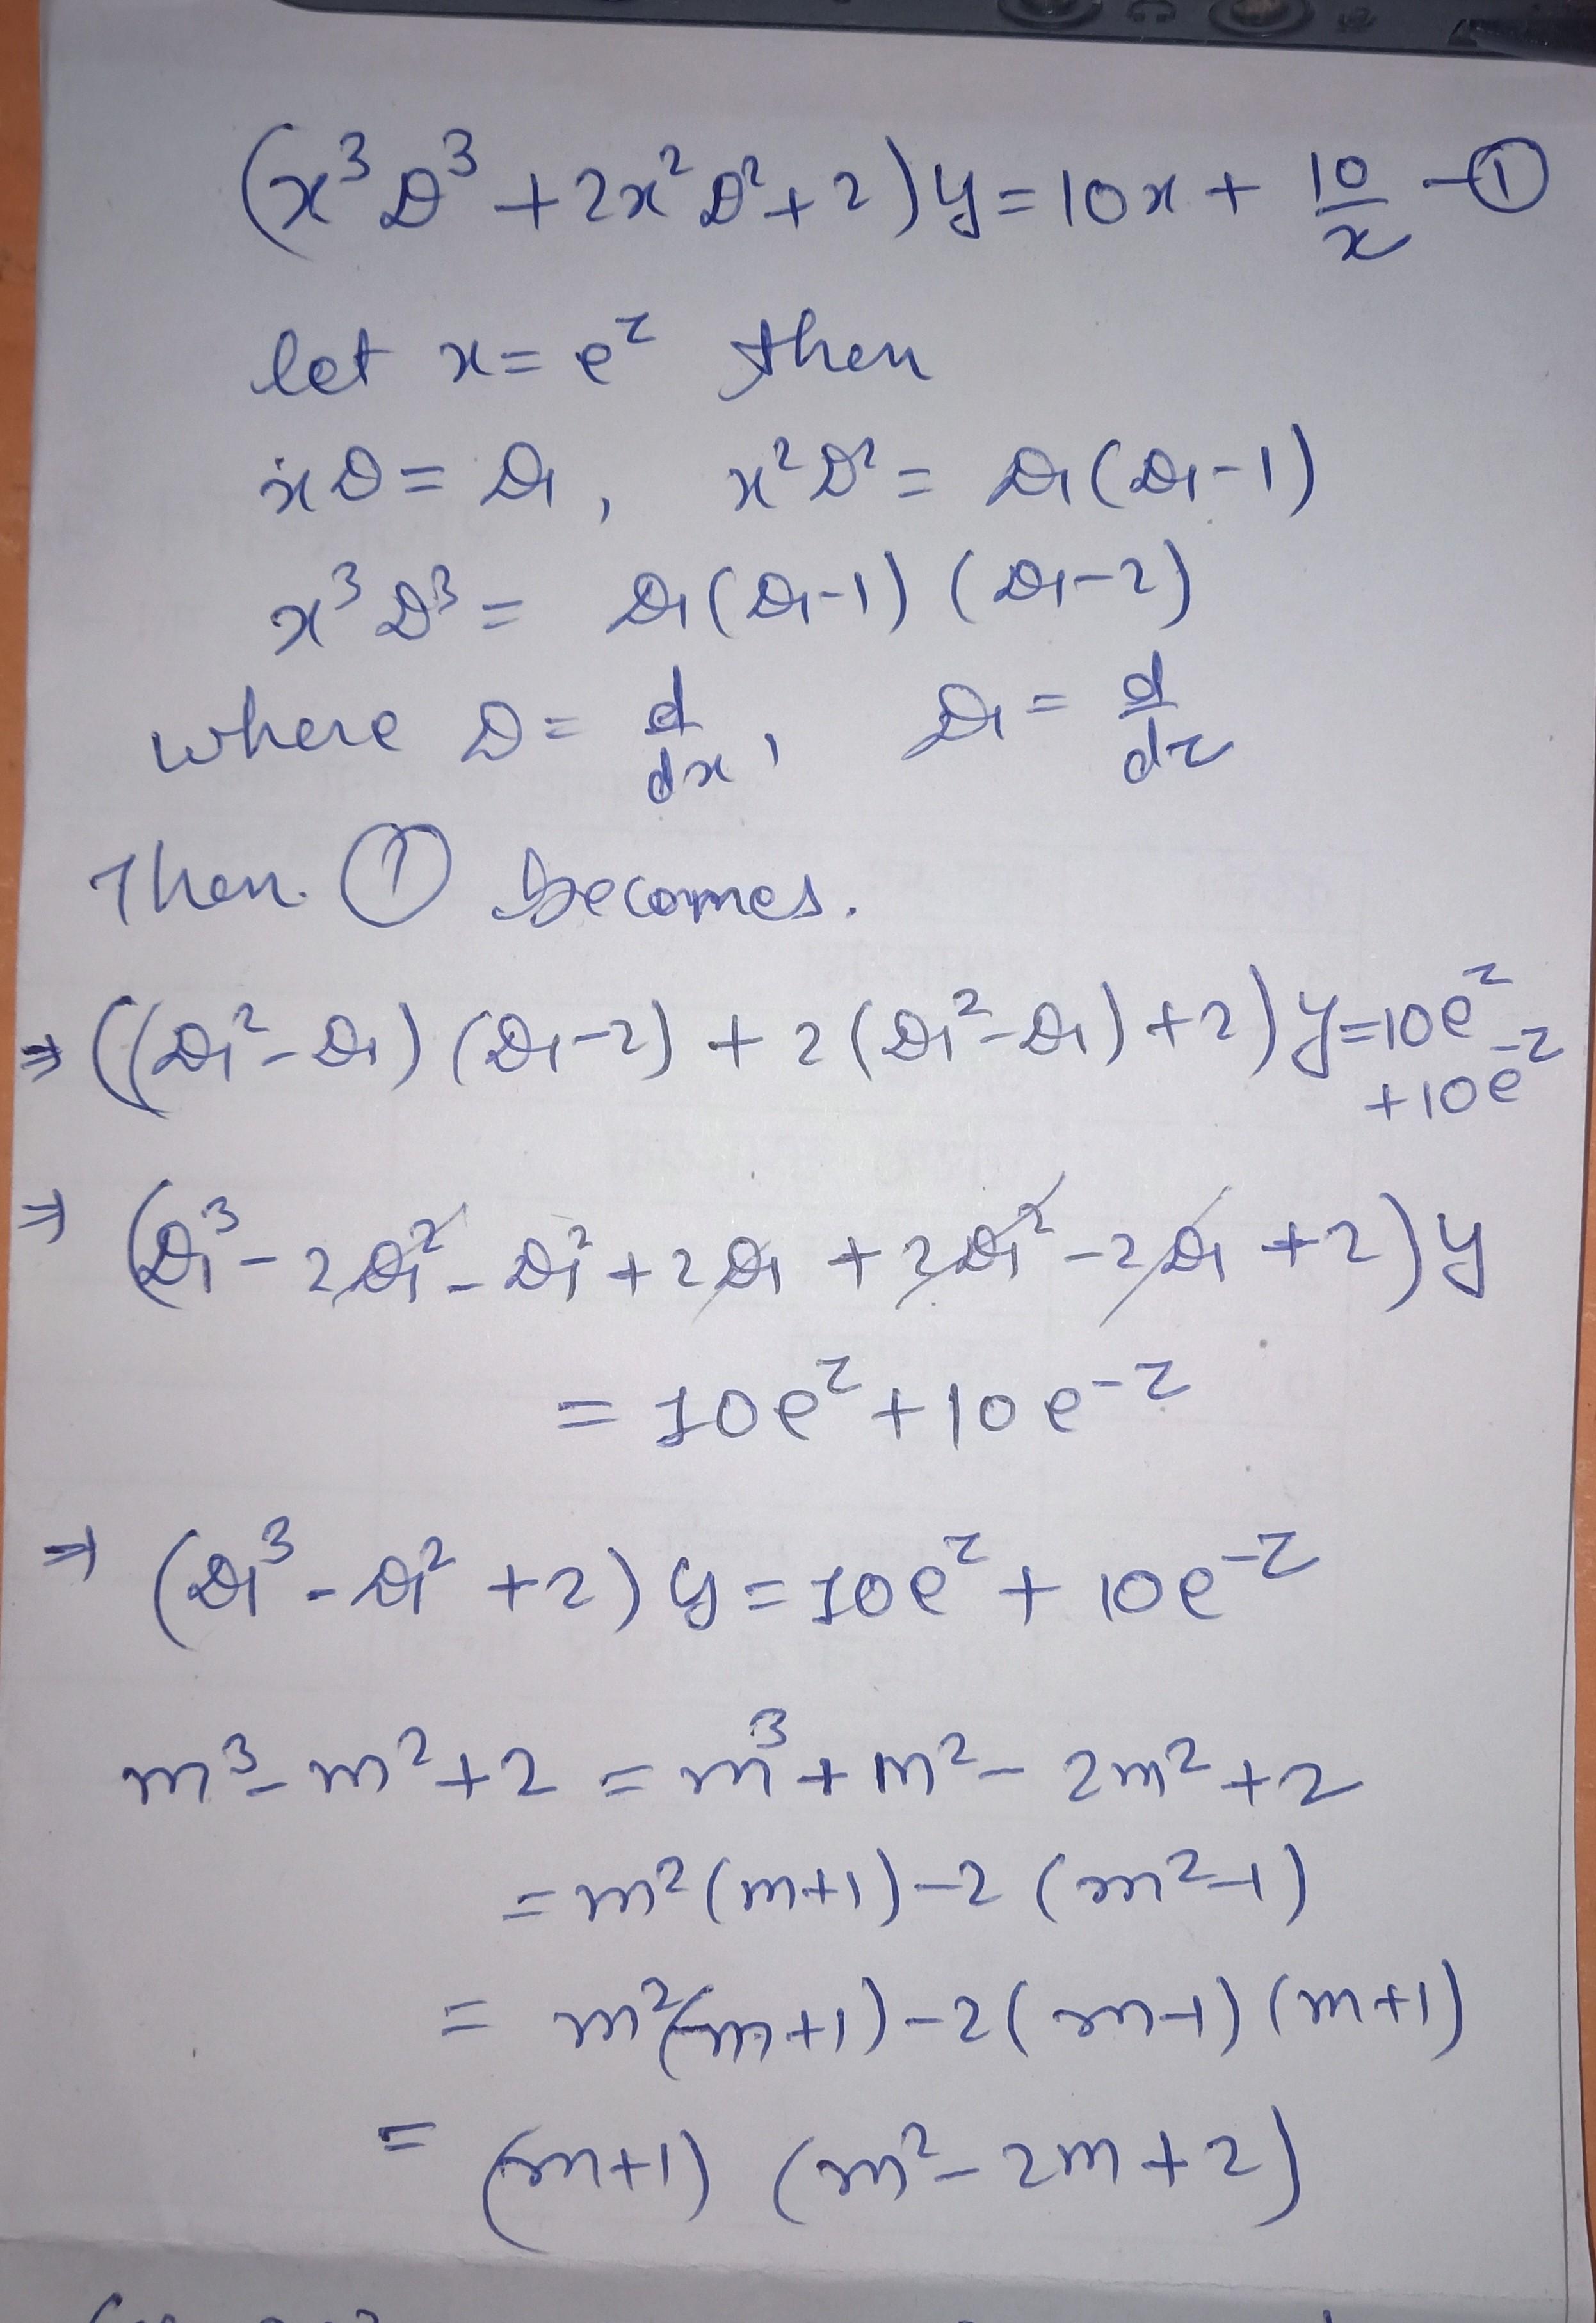 (x³D³ + 2x²D² + 2)y = 10x + 10/x —①
let x = e^z then
xD = D₁, x²D² = D₁(D₁-1)
x³D³ = D₁(D₁-1)(D₁-2)
where D = d/dx, D₁ = d/dz
Then ① becomes.
⇒ ((D₁²-D₁)(D₁-2) + 2(D₁²-D₁)+2)y = 10e^z
+10e^-z
⇒ (D₁³ - 2D₁² - D₁² + 2D₁ + 2D₁² - 2D₁ + 2)y
= 10e^z + 10e^-z
⇒ (D₁³ - D₁² + 2)y = 10e^z + 10e^-z
m³ - m² + 2 = m³ + m² - 2m² + 2
= m²(m+1) - 2(m²-1)
= m²(m+1) - 2(m-1)(m+1)
= (m+1)(m² - 2m + 2)